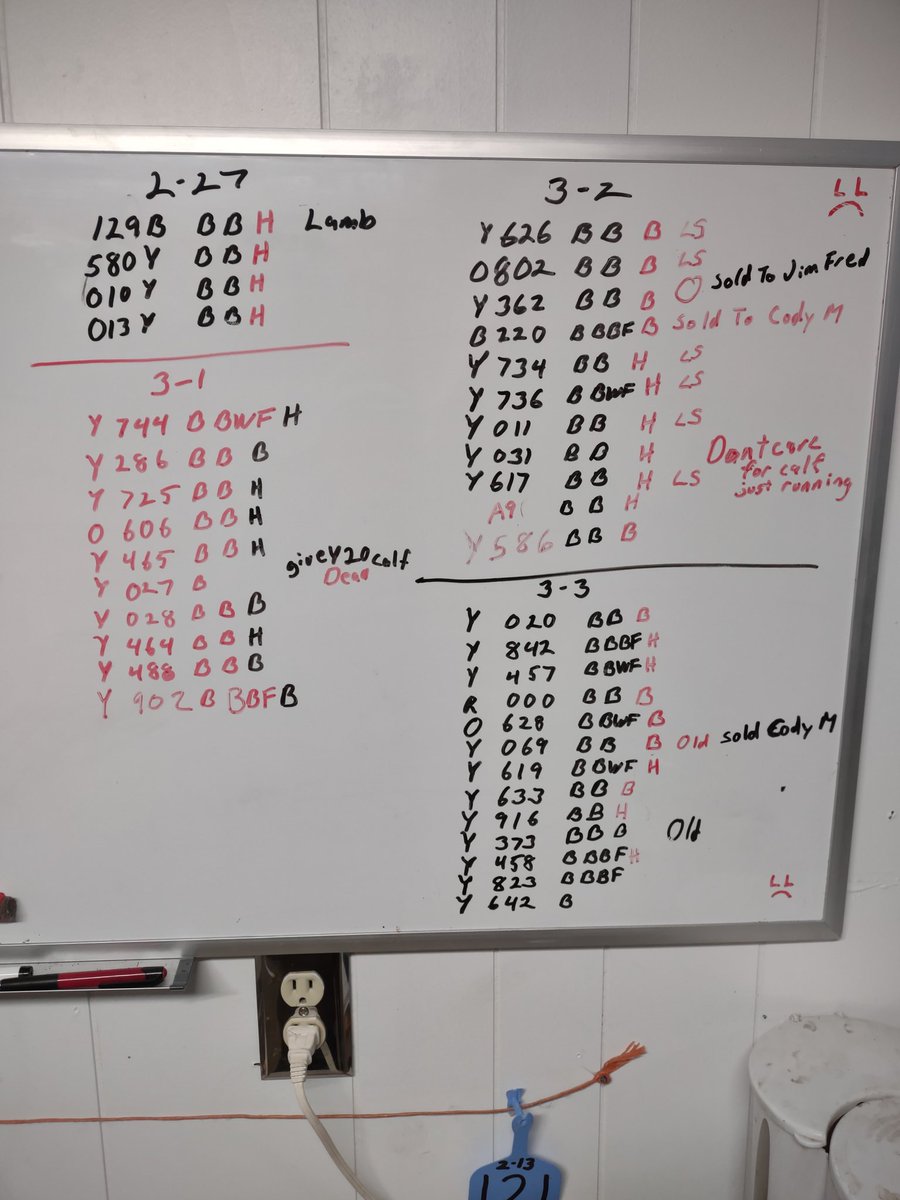 2-27
129B B B H Lamb
580Y B B H
010 Y B B H
013 Y B B H
3-1
Y 744 B BWF H
Y 286 B B B
Y 725 B B H
O 606 B B H
Y 465 B B H
giveY20calf
Y 027 B Dead
Y 028 B B B
Y 464 B B H
Y 488 B B B
Y 902 B BBF B
3-2
LL
Y 626 B B B LS
O802 B B B LS
Y 362 B B B O Sold To Jim Fred
B 220 B BBF B Sold To Cody M
Y 734 B B H LS
Y 736 B BWF H LS
Y 011 B B H LS
Y 031 B B H Dont care
for calf
Y 617 B B H LS just running
A91 B B H
Y 586 B B B
3-3
Y 020 B B B
Y 842 B BBF H
Y 457 B BWF H
R 000 B B B
O 628 B BWF B
Y 069 B B B Old sold Cody M
Y 619 B BWF H
Y 633 B B B
Y 916 B B H
Y 373 B B B Old
Y 458 B BBF H
Y 823 B BBF
Y 642 B
LL
2-13
121